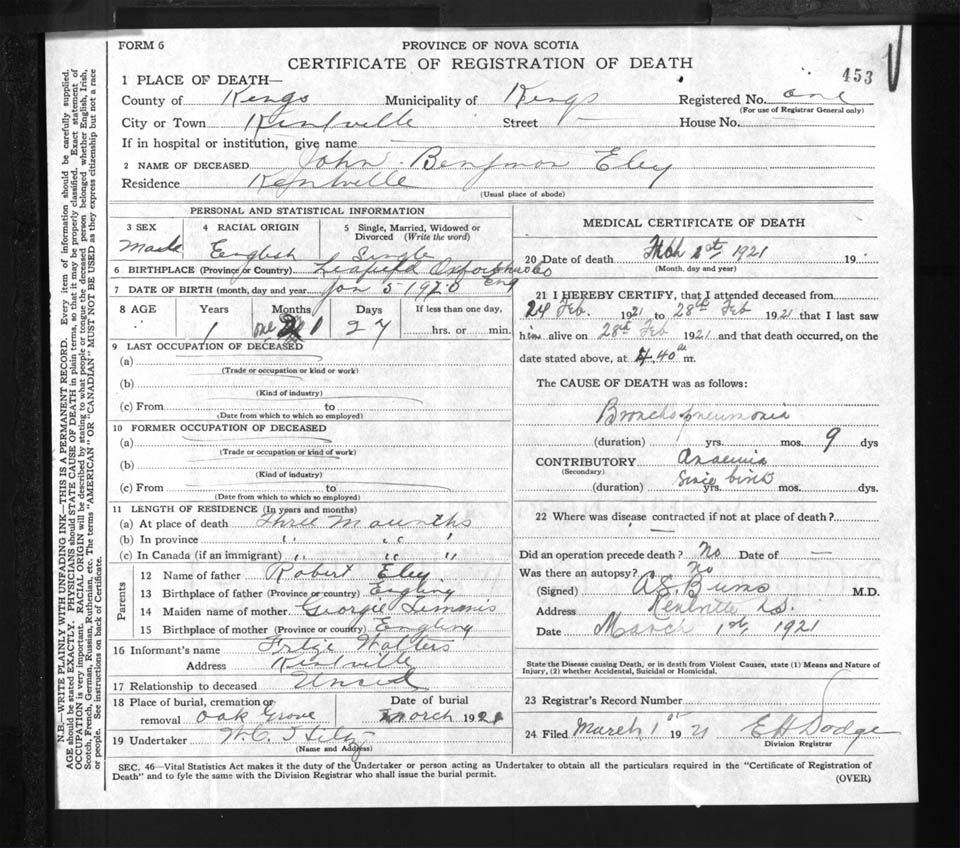 FORM 6
PROVINCE OF NOVA SCOTIA
CERTIFICATE OF REGISTRATION OF DEATH
453
1 PLACE OF DEATH—
County of Kings Municipality of Kings Registered No. one
(For use of Registrar General only)
City or Town Kentville Street — House No. —
If in hospital or institution, give name
2 NAME OF DECEASED John Benjmon Eley
Residence Kentville
(Usual place of abode)
PERSONAL AND STATISTICAL INFORMATION
3 SEX 4 RACIAL ORIGIN 5 Single, Married, Widowed or Divorced (Write the word)
Male English Single
6 BIRTHPLACE (Province or Country) Leafield Oxfordshire Eng
7 DATE OF BIRTH (month, day and year) Jan 5 1920
8 AGE Years Months Days If less than one day,
1 one 1 27 hrs. or min.
9 LAST OCCUPATION OF DECEASED
(a)
(Trade or occupation or kind or work)
(b)
(Kind of industry)
(c) From to
(Date from which to which so employed)
10 FORMER OCCUPATION OF DECEASED
(a)
(Trade or occupation or kind of work)
(b)
(Kind of industry)
(c) From to
(Date from which to which so employed)
11 LENGTH OF RESIDENCE (In years and months)
(a) At place of death Three Mounths
(b) In province " " "
(c) In Canada (if an immigrant) " " "
Parents
12 Name of father Robert Eley
13 Birthplace of father (Province or country)
14 Maiden name of mother Georgie
15 Birthplace of mother (Province or country)
16 Informant's name Walters
Address Kentville
17 Relationship to deceased
18 Place of burial, cremation or removal Oak Grove
Date of burial March 1921
19 Undertaker
(Name and Address)
MEDICAL CERTIFICATE OF DEATH
20 Date of death 1st, 1921 19
(Month, day and year)
21 I HEREBY CERTIFY, that I attended deceased from
24 Feb. 1921 to 28th Feb 1921 that I last saw
him alive on 28th Feb 1921 and that death occurred, on the
date stated above, at 4.40 a m.
The CAUSE OF DEATH was as follows:
Broncho pneumonia
(duration) yrs. mos. 9 dys
CONTRIBUTORY Anaemia
(Secondary) Since birth
(duration) yrs. mos. dys.
22 Where was disease contracted if not at place of death?
—
Did an operation precede death? No Date of —
Was there an autopsy? No
(Signed) A.S. Burns M.D.
Address Kentville N.S.
Date March 1st, 1921
State the Disease causing Death, or in death from Violent Causes, state (1) Means and Nature of
Injury, (2) whether Accidental, Suicidal or Homicidal.
23 Registrar's Record Number
24 Filed March 1st 1921 E H Dodge
Division Registrar
SEC. 46—Vital Statistics Act makes it the duty of the Undertaker or person acting as Undertaker to obtain all the particulars required in the "Certificate of Registration of
Death" and to fyle the same with the Division Registrar who shall issue the burial permit.
(OVER)
N.B.—WRITE PLAINLY WITH UNFADING INK—THIS IS A PERMANENT RECORD. Every item of information should be carefully supplied.
AGE should be stated EXACTLY. PHYSICIANS should STATE CAUSE OF DEATH in plain terms, so that it may be properly classified. Exact statement of
OCCUPATION is very important. RACIAL ORIGIN will be described by stating to what people or tongue the deceased person belonged whether English, Irish,
Scotch, French, German, Russian, Ruthenian, etc. The terms "AMERICAN" OR "CANADIAN" MUST NOT BE USED as they express citizenship but not a race
or people. See instructions on back of Certificate.